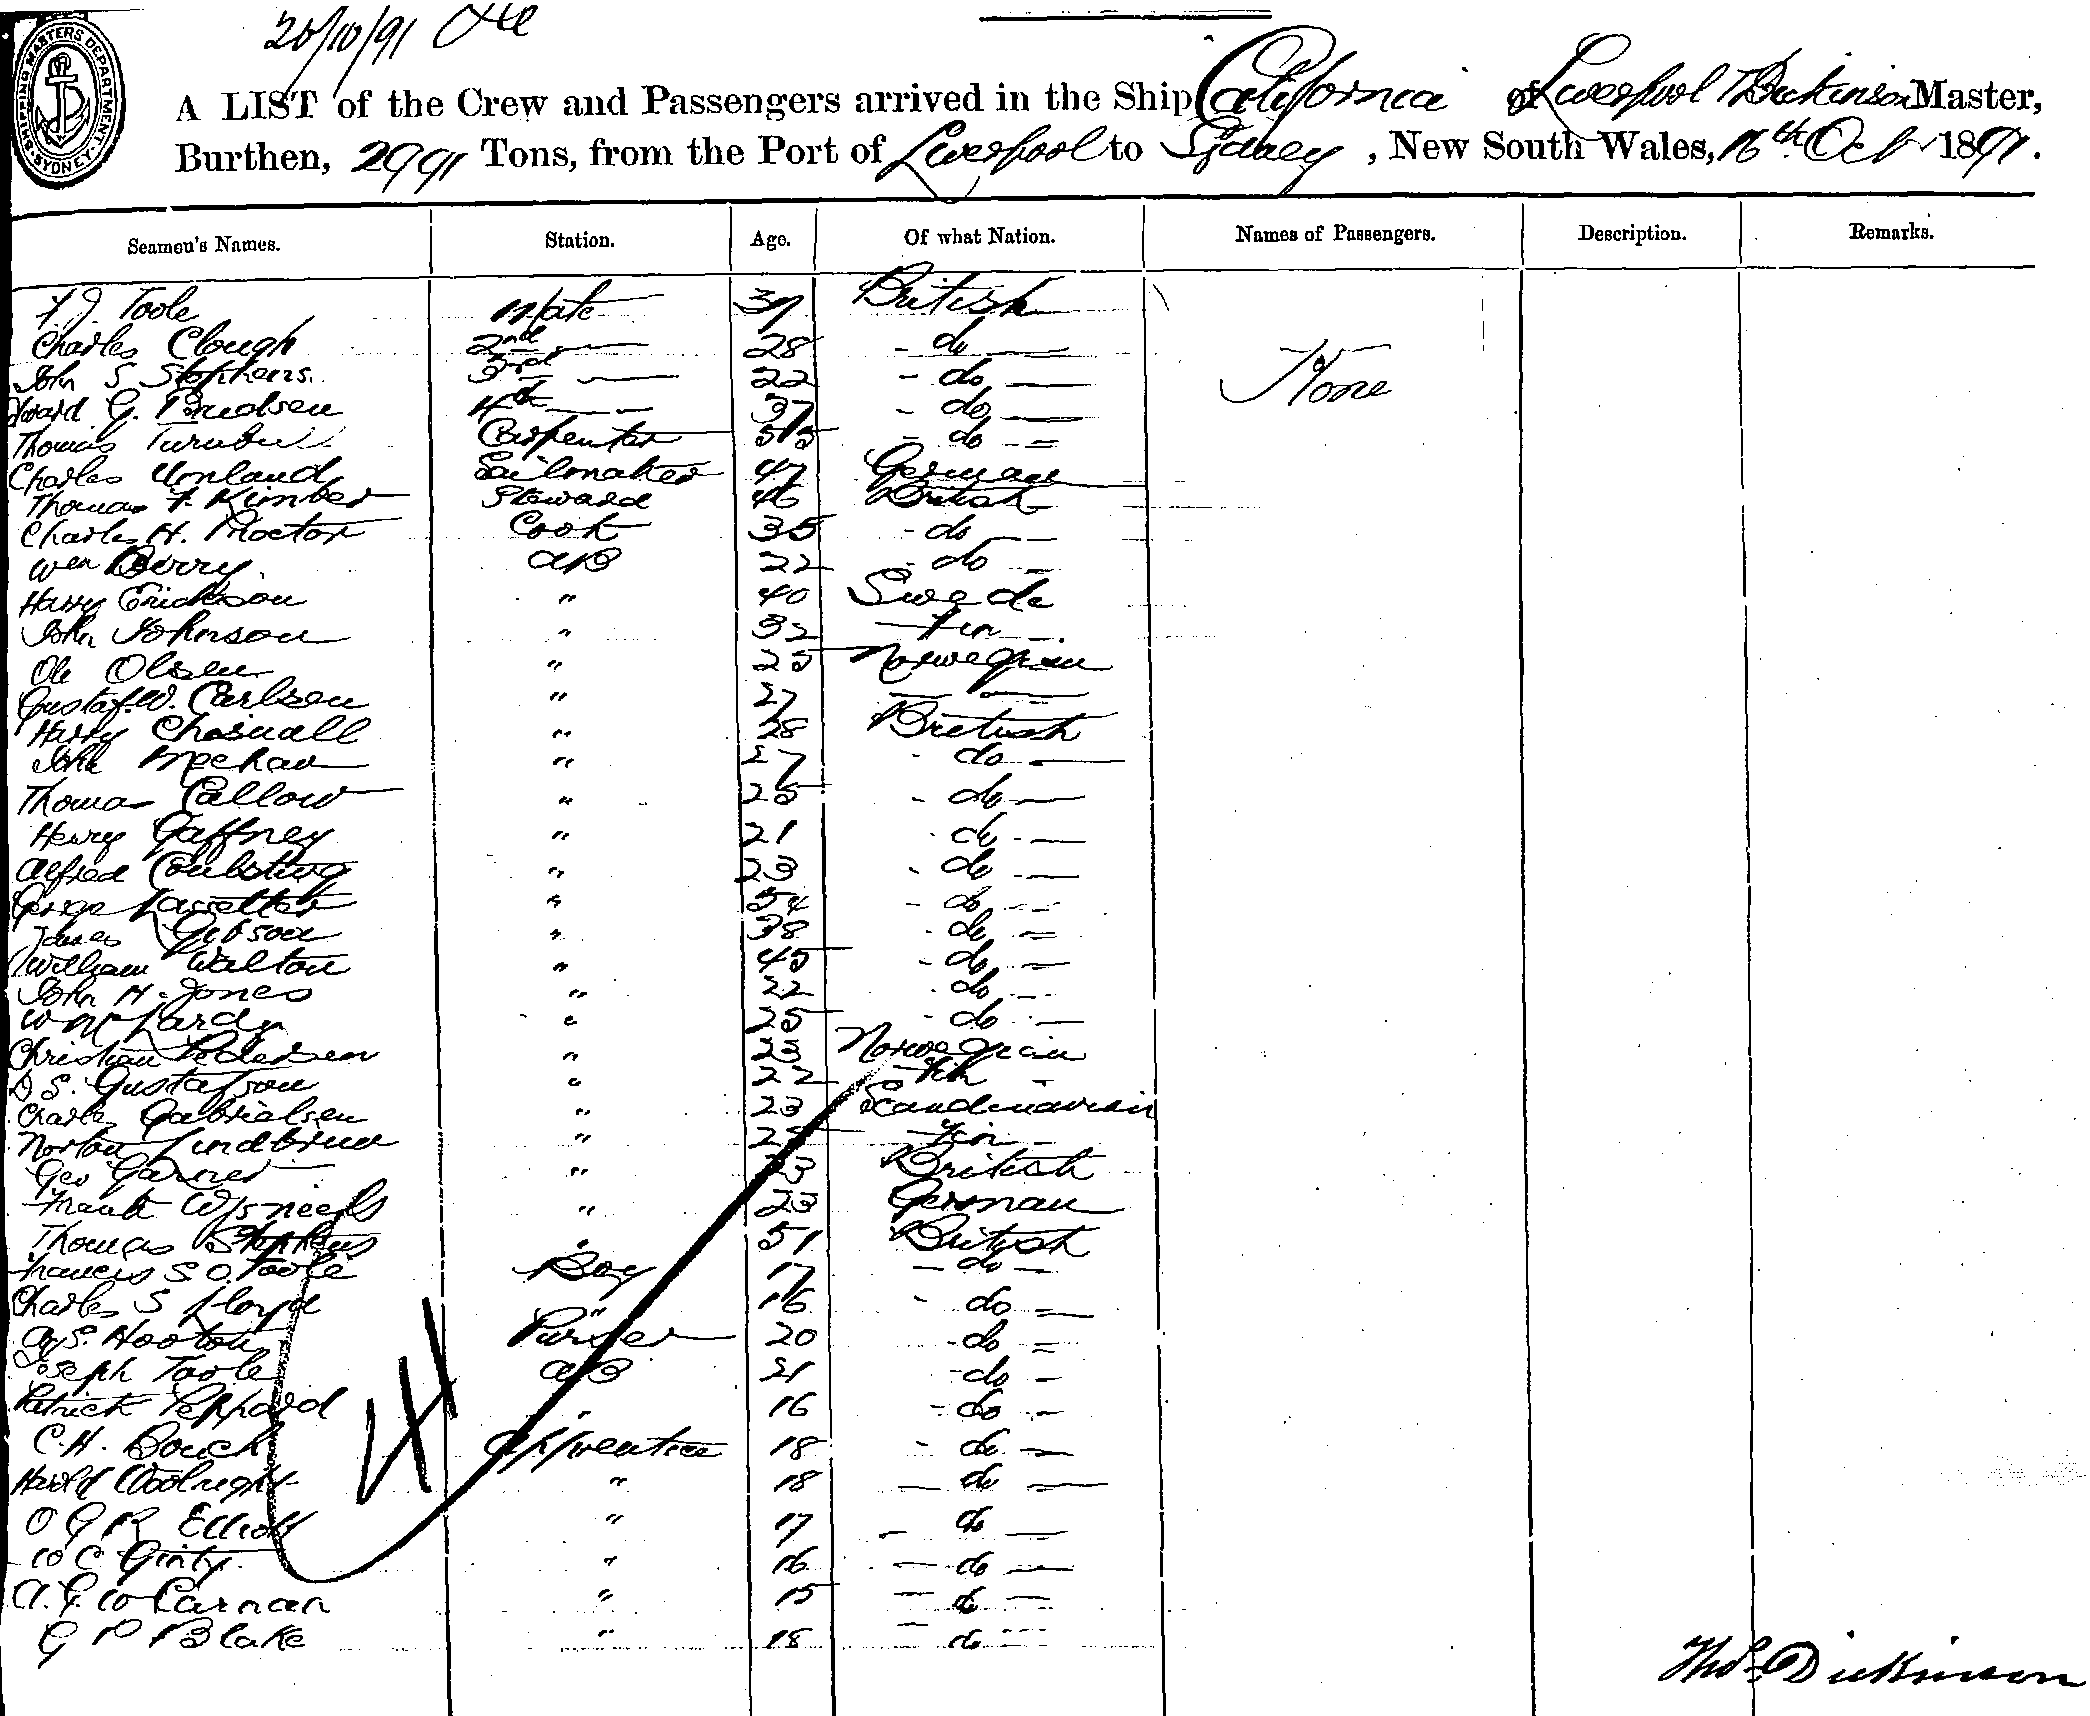 20/10/91
SHIPPING MASTERS DEPARTMENT SYDNEY
A LIST of the Crew and Passengers arrived in the Ship California of Liverpool T Dickinson Master,
Burthen, 2991 Tons, from the Port of Liverpool to Sydney, New South Wales, 16th Oct 1891.
Seamen's Names. Station. Age. Of what Nation. Names of Passengers. Description. Remarks.
F. J. Toole Mate 37 British
Charles Clough 2nd — 28 - do —
John S Stephens 3rd — 22 - do — None
G. Knudsen 4th — 37 - do —
Thomas Turnbull Carpenter 55 - do —
Charles Umland Sailmaker 47 German
Thomas F. Kimber Steward 46 British
Charles H. Proctor Cook 35 - do —
Wm Berry AB 22 - do —
Harry Erickson " 40 Swede
John Johnson " 32 Fin
Ole Olsen " 25 Norwegian
Gustaf. W. Carlsen " 27 — —
Harry Chesnall " 28 British
John Meehan " 27 - do —
Thomas Callow " 25 - do —
Henry Gaffney " 21 - do —
Alfred " 23 - do —
George " 54 - do —
James Gibson " 38 - do —
William Walton " 45 - do —
John H. Jones " 22 - do —
Wm " 25 - do —
Christian Pedersen " 23 Norwegian
D S. Gustafson " 22 Fin
Charles Gabrielsen " 23 Scandinavian
Norton " 25 Fin
Geo Garner " 23 British
Frank " 23 German
Thomas Stephens " 51 British
Francis S O. Toole Boy 17 - do —
Charles S Lloyd " 16 - do —
S. Hooton Purser 20 - do —
Joseph Toole AB 21 - do —
Patrick Peppard " 16 - do —
C. H. Bouch Apprentice 18 - do —
Harold Woolright " 18 - do —
O G R Elliott " 17 - do —
W C Ginty " 16 - do —
A. G. W Carnan " 15 - do —
G P Blake " 18 - do —
Thos Dickinson